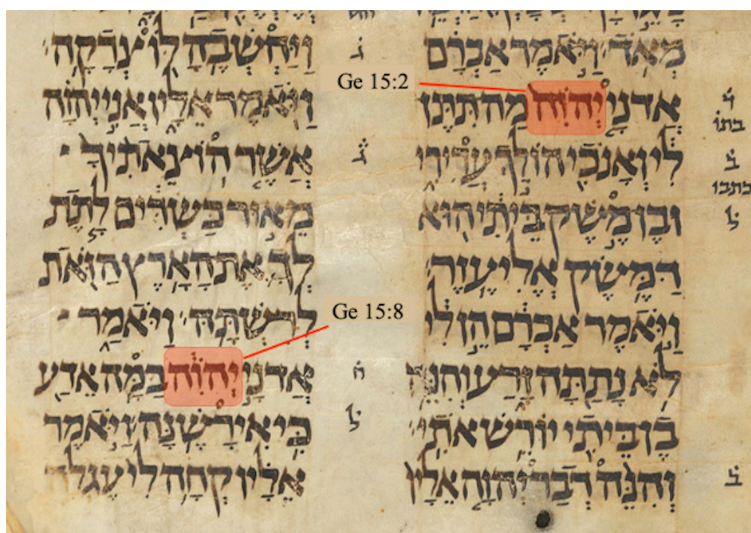 מְאֹד וַיֹּאמֶר אַבְרָם
אֲדֹנָי יֱהֹוִה מַה תִּתֶּן
לִי וְאָנֹכִי הוֹלֵךְ עֲרִירִי
וּבֶן מֶשֶׁק בֵּיתִי הוּא
דַּמֶּשֶׂק אֱלִיעֶזֶר
וַיֹּאמֶר אַבְרָם הֵן לִי
לֹא נָתַתָּה זָרַע וְהִנֵּה
בֶן בֵּיתִי יוֹרֵשׁ אֹתִי
וְהִנֵּה דְבַר יְהוָה אֵלָיו
Ge 15:2
וַיַּחְשְׁבֶהָ לּוֹ צְדָקָה
וַיֹּאמֶר אֵלָיו אֲנִי יְהוָה
אֲשֶׁר הוֹצֵאתִיךָ
מֵאוּר כַּשְׂדִּים לָתֶת
לְךָ אֶת הָאָרֶץ הַזֹּאת
לְרִשְׁתָּהּ וַיֹּאמַר
אֲדֹנָי יֱהֹוִה בַּמָּה אֵדַע
כִּי אִירָשֶׁנָּה וַיֹּאמֶר
אֵלָיו קְחָה לִי עֶגְלָה
Ge 15:8